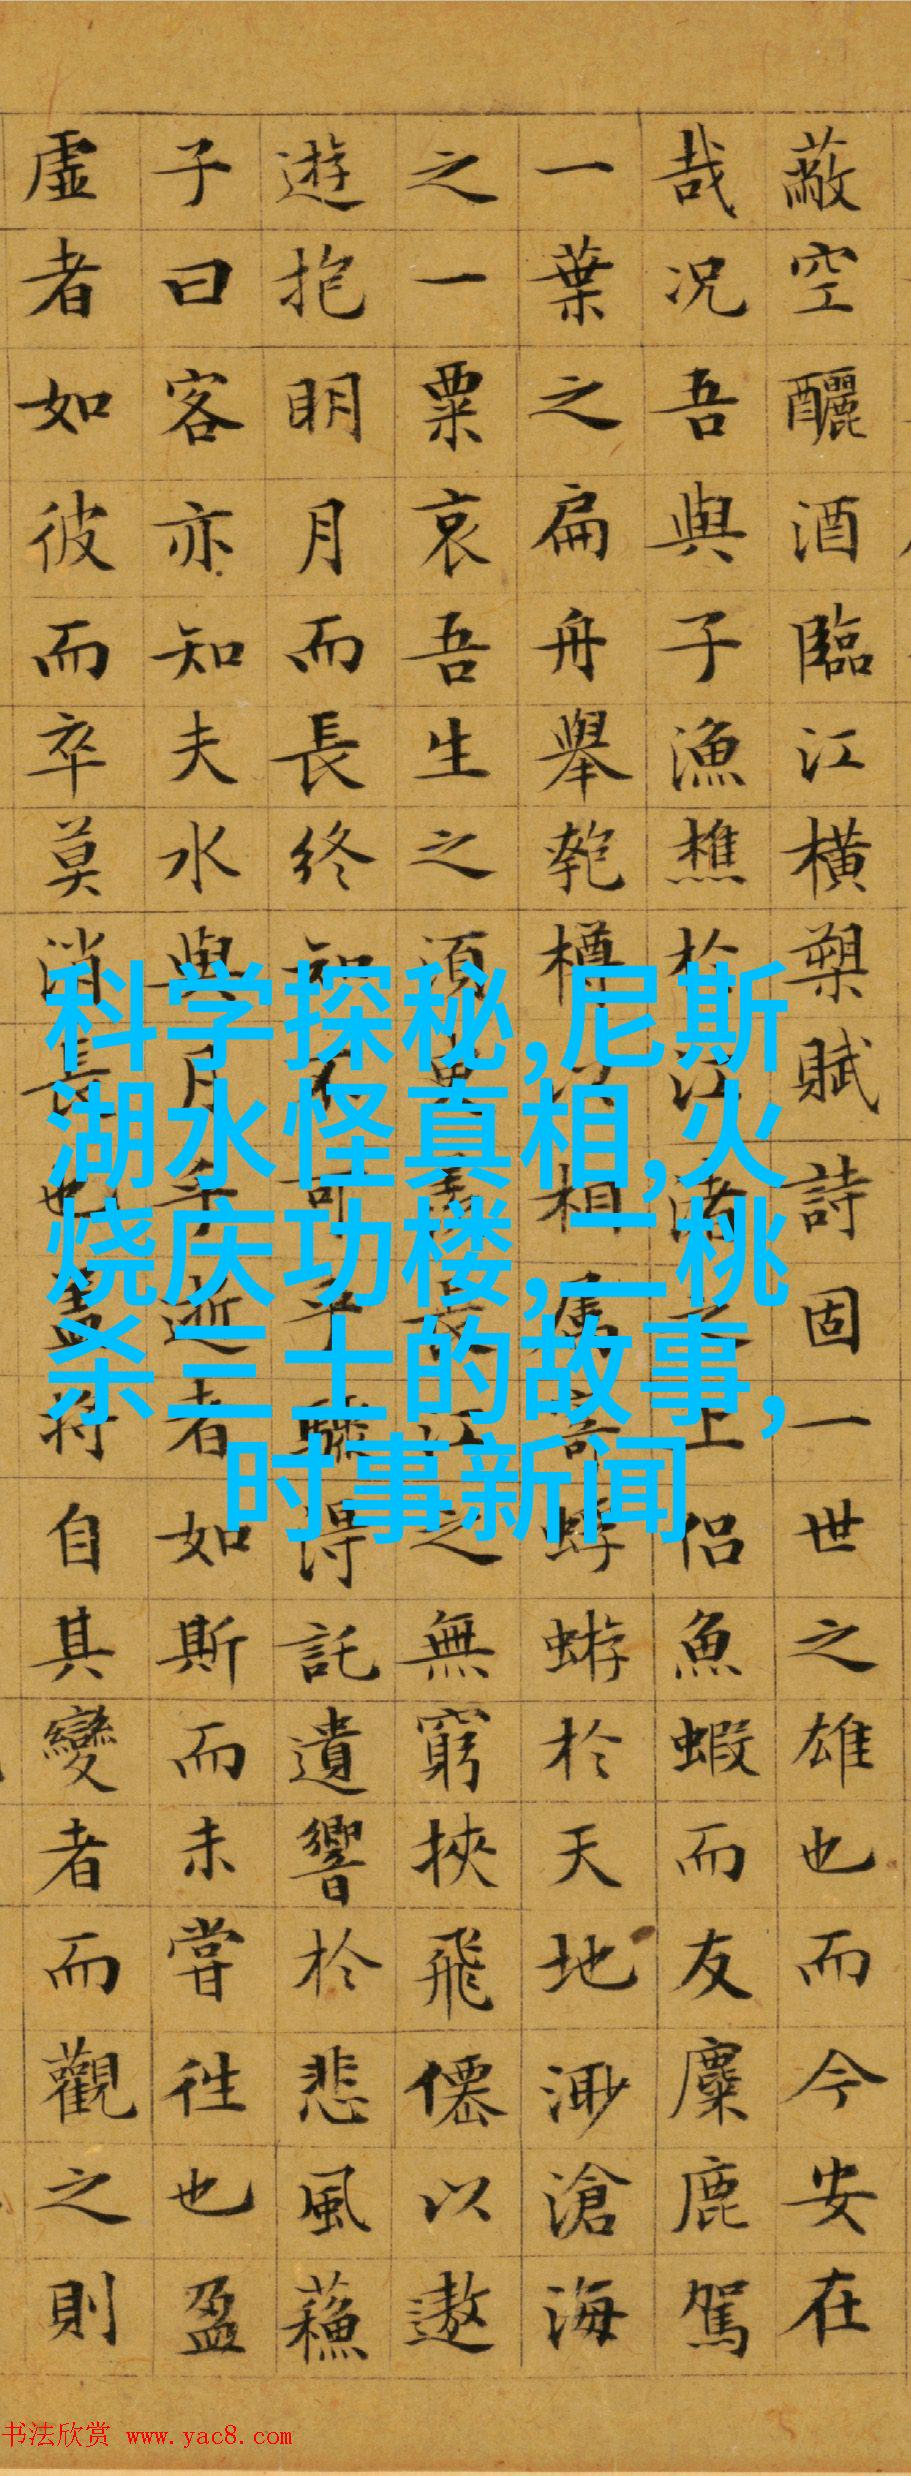 蔽空釃酒臨江橫槊賦詩固一世之雄也而今安在
哉况吾與子漁樵於江渚之上侣魚蝦而友麋鹿駕
一葉之扁舟舉匏樽以相屬寄蜉蝣於天地渺滄海
之一粟哀吾生之須臾羨長江之無窮挾飛僊以遨
遊抱明月而長終知不可乎驟得託遺響於悲風蘓
子曰客亦知夫水與月乎逝者如斯而未嘗往也盈
虛者如彼而卒莫消長也盖將自其變者而觀之則
科学探秘,尼斯
湖水怪真相,火
烧庆功楼,二桃
杀三士的故事,
时事新闻
书法欣赏 www.yac8.com